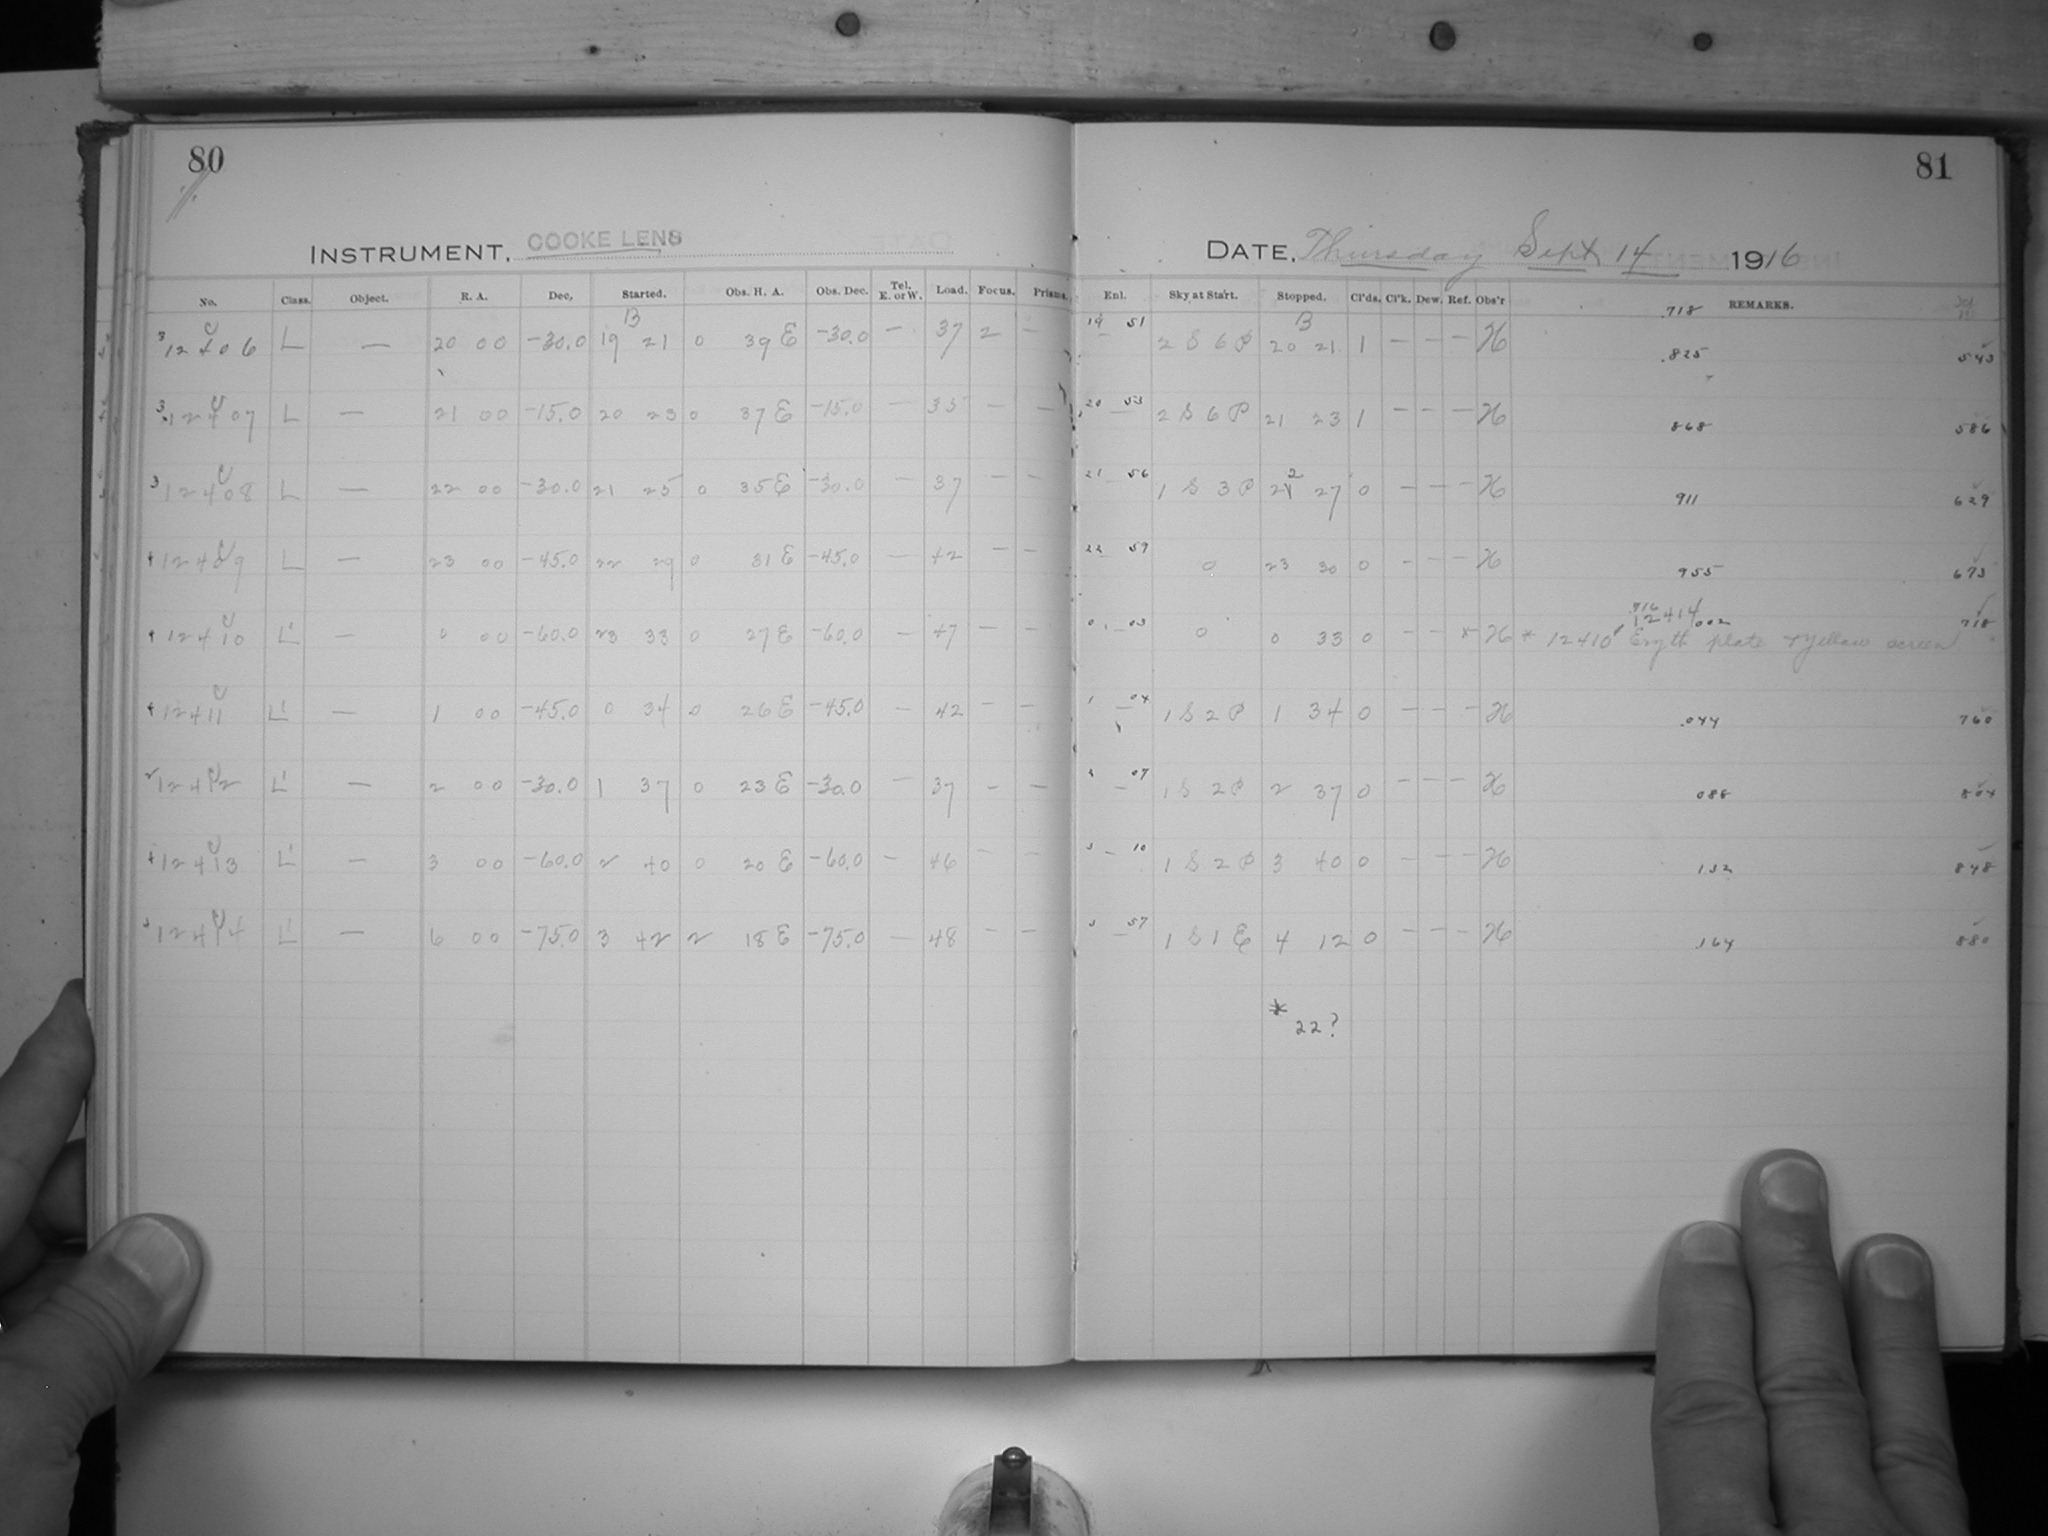 80
INSTRUMENT, COOKE LENS
No. Class. Object. R. A. Dec, Started. Obs. H. A. Obs. Dec. Tel. E. or W. Load. Focus. Prisms.
B
3 12406 L — 20 00 -30.0 19 21 0 39 E -30.0 — 37 2 —
3 12407 L — 21 00 -15.0 20 23 0 37 E -15.0 — 35 — —
3 12408 L — 22 00 -30.0 21 25 0 35 E -30.0 — 37 — —
4 12409 L — 23 00 -45.0 22 29 0 31 E -45.0 — 42 — —
4 12410 L' — 0 00 -60.0 23 33 0 27 E -60.0 — 47 — —
4 12411 L' — 1 00 -45.0 0 34 0 26 E -45.0 — 42 — —
2 12412 L' — 2 00 -30.0 1 37 0 23 E -30.0 — 37 — —
4 12413 L' — 3 00 -60.0 2 40 0 20 E -60.0 — 46 — —
3 12414 L' — 6 00 -75.0 3 42 2 18 E -75.0 — 48 — —
81
DATE, Thursday Sept 14 1916
Enl. Sky at Start. Stopped. Cl'ds. Cl'k. Dew. Ref. Obs'r REMARKS.
.718
B
19 51 2 S 6 P 20 21 1 — — — H .825 543
20 53 2 S 6 P 21 23 1 — — — H 868 586
2
21 56 1 S 3 P 21 27 0 — — — H 911 629
22 59 0 23 30 0 — — — H 955 673
.716 12414 002 718
0 03 0 0 33 0 — — * H * 12410 Eryth plate & yellow screen
1 04 1 S 2 P 1 34 0 — — — H .044 760
2 07 1 S 2 P 2 37 0 — — — H 088 804
3 10 1 S 2 P 3 40 0 — — — H .132 848
3 57 1 S 1 E 4 12 0 — — — H .164 880
*
22?